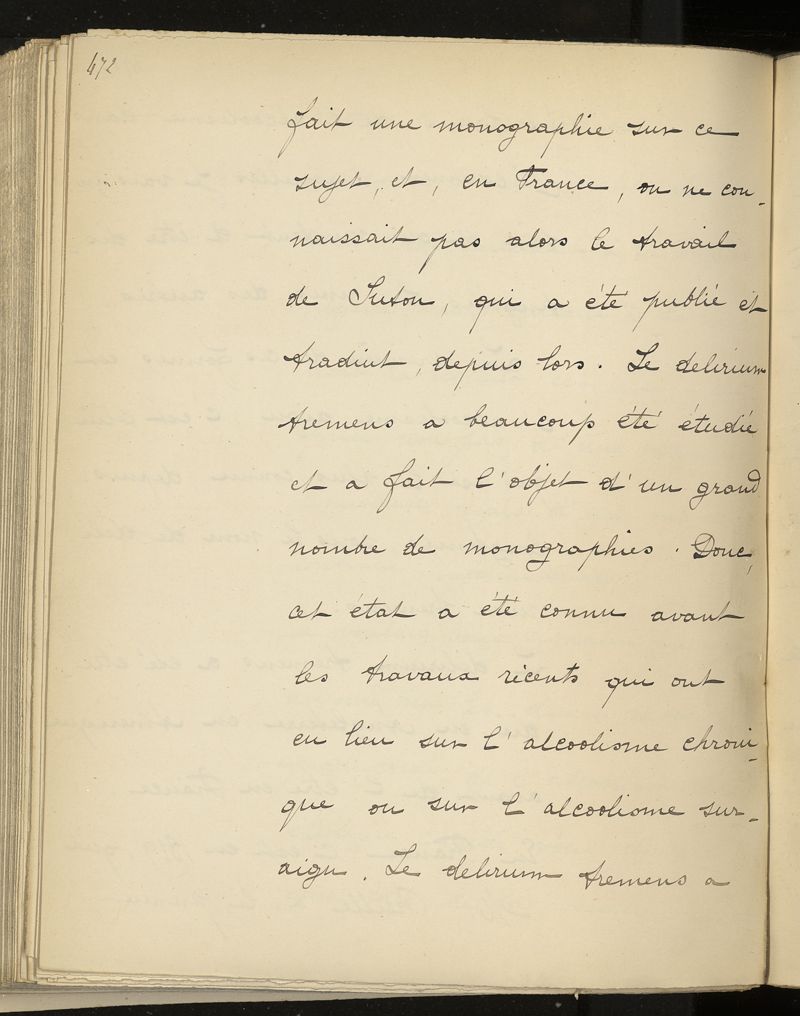 472
fait une monographie sur ce
sujet, et, en France, on ne con-
naissait pas alors le travail
de Suton, qui a été publié et
traduit, depuis lors. Le delirium
tremens a beaucoup été étudié
et a fait l'objet d'un grand
nombre de monographies. Donc,
cet état a été connu avant
les travaux récents qui ont
eu lieu sur l'alcoolisme chroni-
que ou sur l'alcoolisme sur-
aigu. Le delirium tremens a